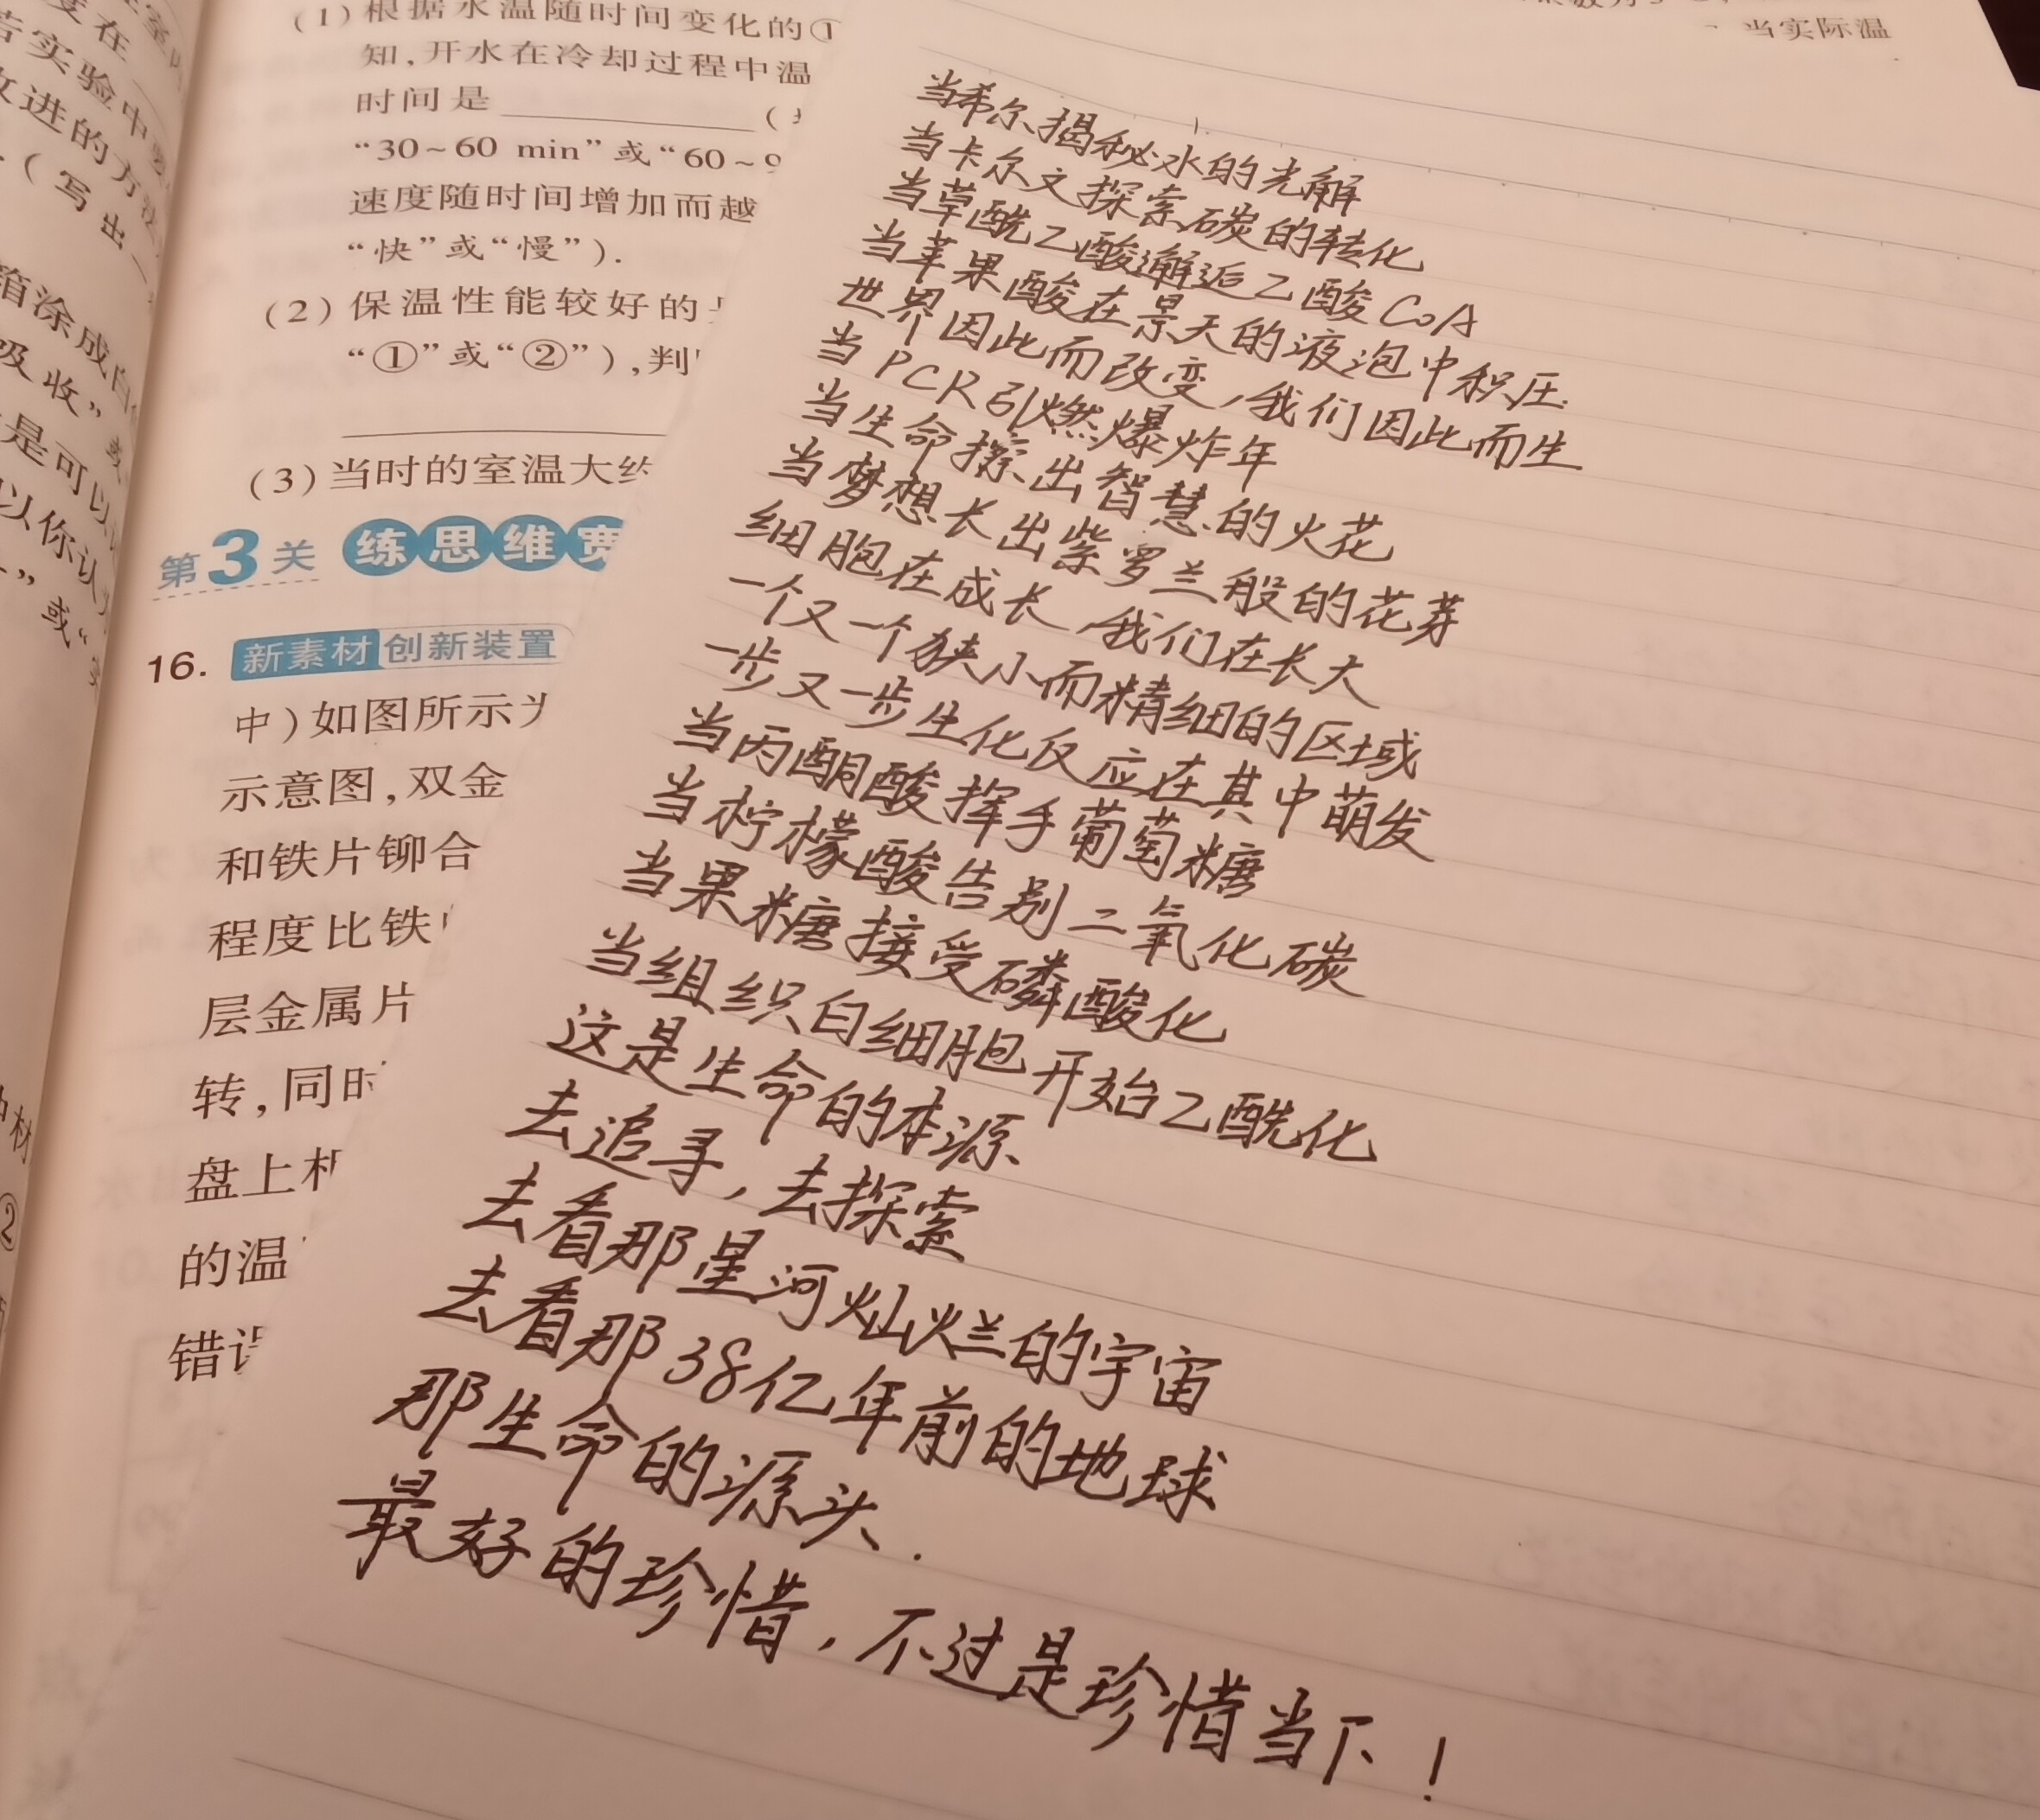 度在
若实验中要
改进的方法
(写出一
箱涂成白
吸收”或
是可以
以你认为
”或“实
②
(1)根据水温随时间变化的①
知,开水在冷却过程中温
时间是
“30~60 min”或“60~9
速度随时间增加而越
“快”或“慢”).
(2)保温性能较好的是
“①”或“②”),判
(3)当时的室温大约
第3关 练思维宽
16. 新素材 创新装置
中)如图所示为
示意图,双金
和铁片铆合
程度比铁片
层金属片
转,同时
盘上相
的温
错误
当实际温
当希尔揭秘水的光解
当卡尔文探索碳的转化
当草酰乙酸邂逅乙酸CoA
当苹果酸在景天的液泡中积压.
世界因此而改变,我们因此而生
当PCR引燃爆炸年
当生命擦出智慧的火花
当梦想长出紫罗兰般的花芽
细胞在成长,我们在长大
一个又一个狭小而精细的区域
一步又一步生化反应在其中萌发
当丙酮酸挥手葡萄糖
当柠檬酸告别二氧化碳
当果糖接受磷酸化
当组织白细胞开始乙酰化
这是生命的本源
去追寻,去探索
去看那星河灿烂的宇宙
去看那38亿年前的地球
那生命的源头.
最好的珍惜,不过是珍惜当下!